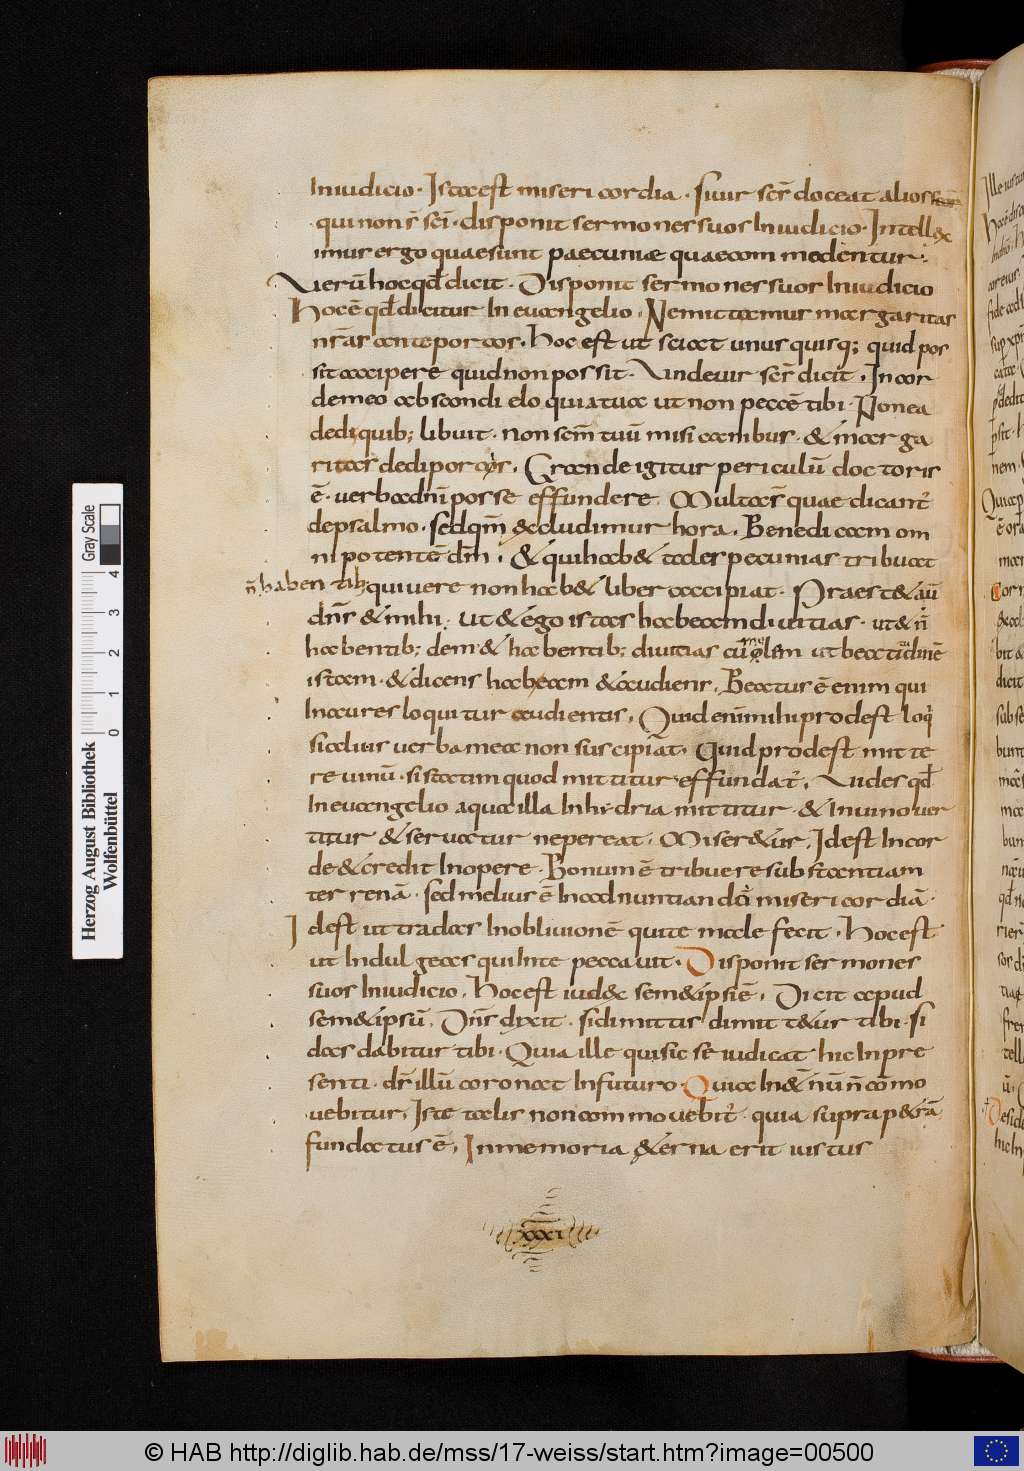 In iudicio. Ista est misericordia. si uir scs̄ doceat alios
qui non s̄ sc̄i. disponit sermones suos In iudicio. Intelleg
imur ergo quae sunt paecuniae quae commodentur.
Uerū hoc qđ dicit. Disponit sermones suos In iudicio
Hoc ē qđ dicitur In euangelio. Ne mittamus margaritas
nr̄as ante porcos. hoc est ut sciat unusquisq; quid pos
sit accipere quid non possit. Unde uir scs̄ dicit. In cor
de meo abscondi eloquia tua ut non peccē tibi. Non ea
dedi quib; libuit. non sem̄ tuū misi canibus. & marga
ritas dedi porcis. Grande igitur periculū doctoris
ē. uerba dn̄i posse effundere. Multa s̄ quae dicant̄
de psalmo. sed qm̄ excludimur hora. Benedicam om
nipotentē dm̄. & qui hab& tales pecunias tribuat
n̄ habentib; qui uere non hab& liber accipiat. Praest& aū
dn̄s & mihi. ut & ego istas habeam diuitias. ut & n̄
habentib; dem & habentib; diuitias cū uolem ut beatudinē
istam. & dicens habeam & audiens. Beatus ē enim qui
In aures loquitur audientis. Quid enī mihi prodest loq̄
si alius uerba mea non suscipiat. Quid prodest mitte
re uinū. si statim quod mittitur effundat̄. Uides qđ
In euangelio aqua illa In hydria mittitur. & In uino uer
titur & seruatur ne pereat. Miser&ur. Id est In cor
de & credit In opere. Bonum ē tribuere substantiam
terrenā. sed melius ē In adnuntiando misericordiā.
Id est ut tradas In obliuionē qui te male fecit. Hoc est
ut Indulgeas qui In te peccauit. Disponit sermones
suos In iudicio. Hoc est iudex sem&ipsiē. Dicit apud
sem&ipsū. Dn̄s dixit. si dimittis dimitt&ur tibi. si
das dabitur tibi. Quia ille qui sic se iudicat hic In pre
senti. dn̄s illū coronat In futuro. Quia In &nū n̄ cōmo
uebitur. Iste talis non commouebit̄. quia supra p&rā
fundatus ē. In memoria &erna erit iustus
xxxi
Herzog August Bibliothek
Wolfenbüttel
0 1 2 3 4
Gray Scale
© HAB http://diglib.hab.de/mss/17-weiss/start.htm?image=00500